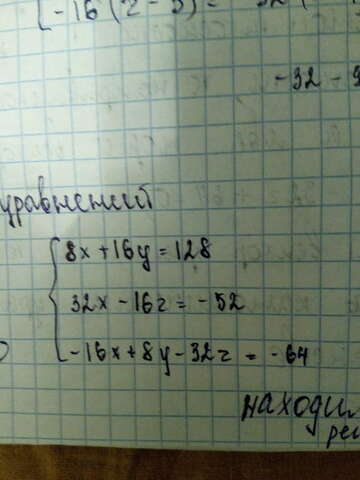 -16(2-5) =
-32 -
уравнений
8x+16y=128
32x-16z=-52
-16x+8y-32z=-64
находим